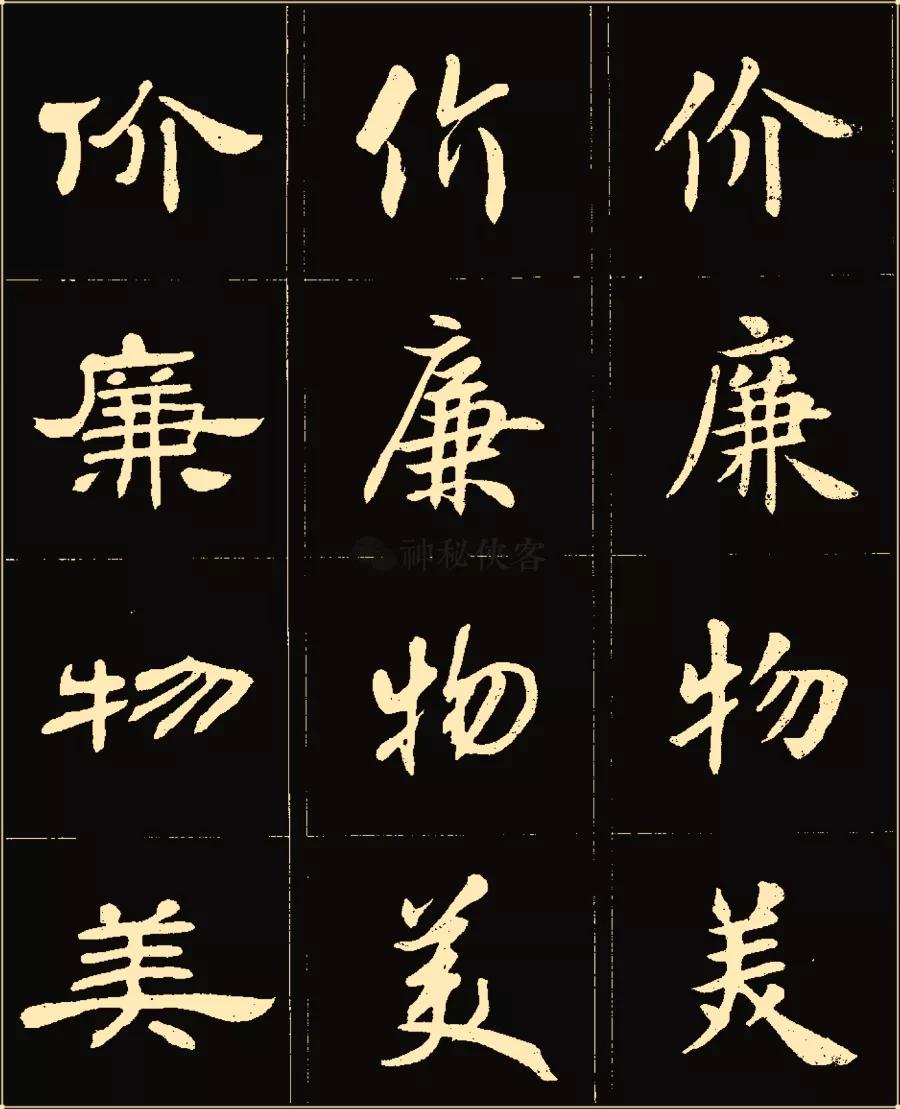 价 价 价
廉 廉 廉
物 物 物
神秘侠客
美 美 美